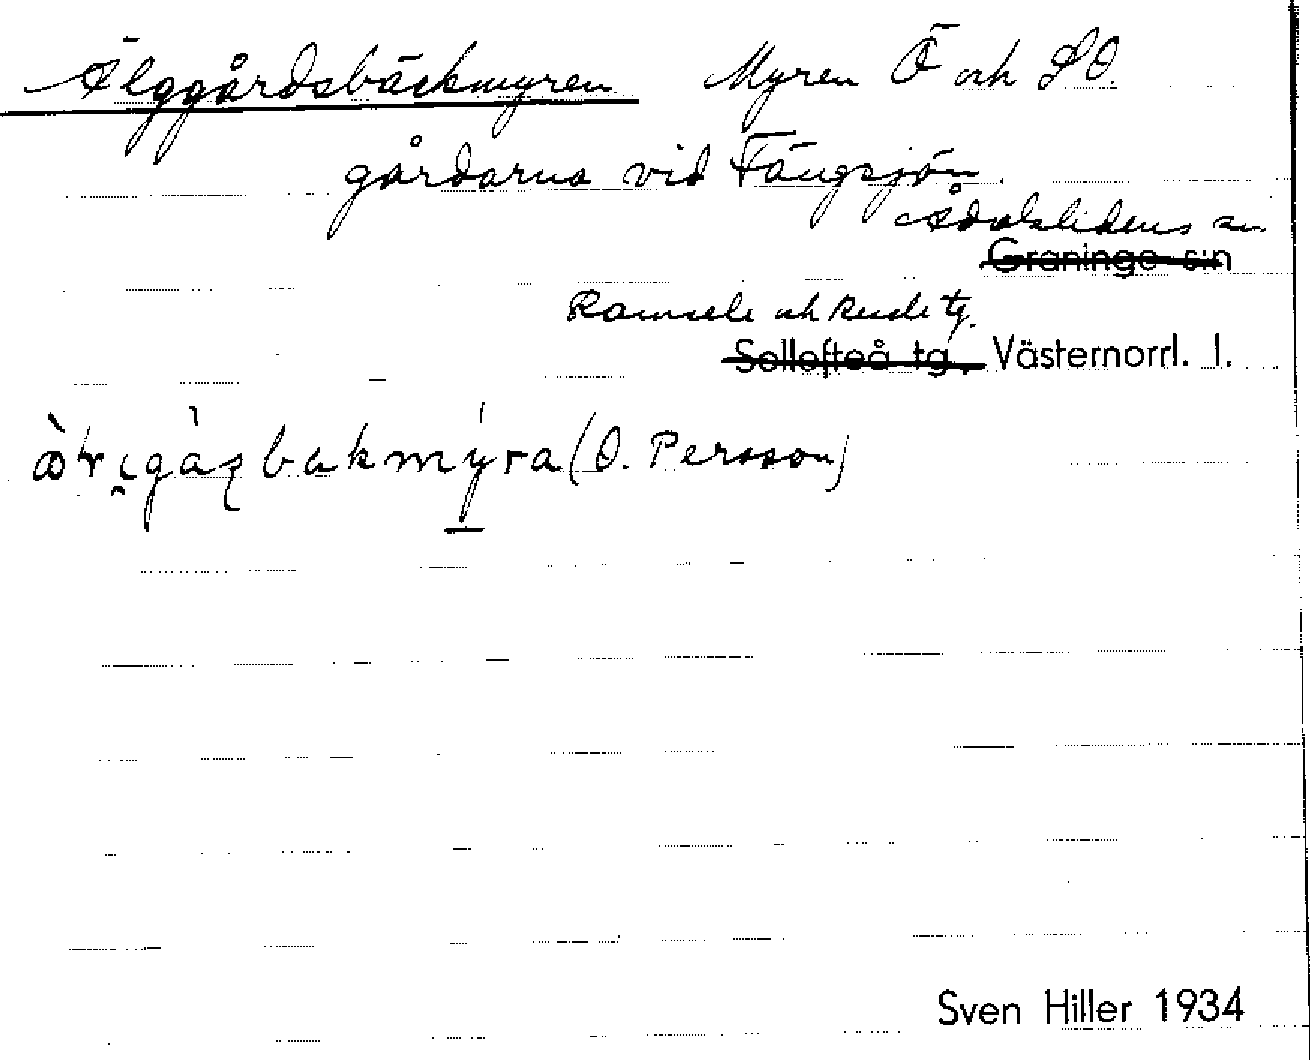 Älggårdsbäckmyren Myren Ö och SO.
gårdarna vid Fängsjön.
Ådalslidens sn
Graninge s:n
Ramsele och Resele tg.
Sollefteå tg. Västernorrl. l.
(O. Persson)
Sven Hiller 1934